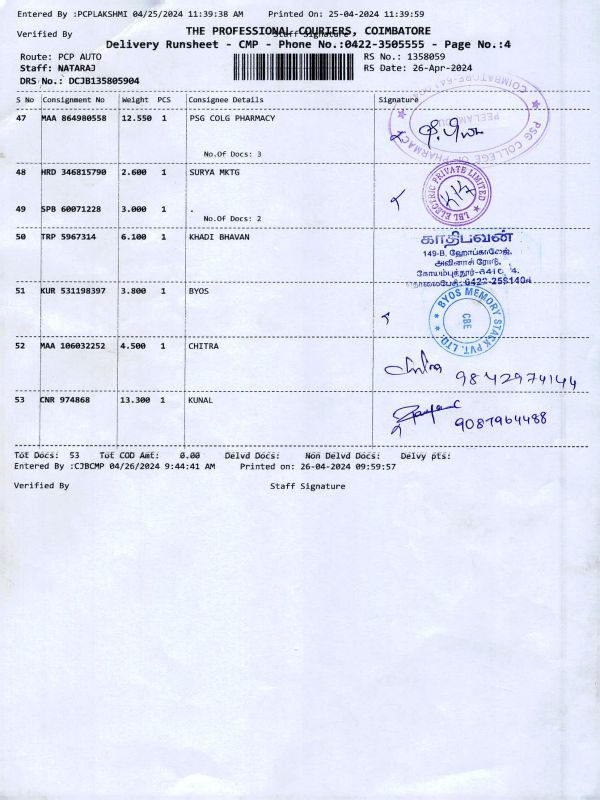 Entered By :PCPLAKSHMI 04/25/2024 11:39:38 AM Printed On: 25-04-2024 11:39:59
Verified By Staff Signature
THE PROFESSIONAL COURIERS, COIMBATORE
Delivery Runsheet - CMP - Phone No.:0422-3505555 - Page No.:4
Route: PCP AUTO RS No.: 1358059
Staff: NATARAJ RS Date: 26-Apr-2024
DRS No.: DCJB135805904
S No Consignment No Weight PCS Consignee Details Signature
47 MAA 864980558 12.550 1 PSG COLG PHARMACY
PSG COLLEGE OF PHARMACY
PEELAMEDU
COIMBATORE-641004
No.Of Docs: 3
48 HRD 346815790 2.600 1 SURYA MKTG
LBL ELECTRIC PRIVATE LIMITED
49 SPB 60071228 3.000 1 .
No.Of Docs: 2
50 TRP 5967314 6.100 1 KHADI BHAVAN
காதிபவன்
149-B, ஹோப்காலேஜ்,
அவினாசி ரோடு,
51 KUR 531198397 3.800 1 BYOS
BYOS MEMORY STACK PVT. LTD.
CBE
52 MAA 106032252 4.500 1 CHITRA
Chitra 9842974144
53 CNR 974868 13.300 1 KUNAL
9087964488
Tot Docs: 53 Tot COD Amt: 0.00 Delvd Docs: Non Delvd Docs: Delvy pts:
Entered By :CJBCMP 04/26/2024 9:44:41 AM Printed on: 26-04-2024 09:59:57
Verified By Staff Signature